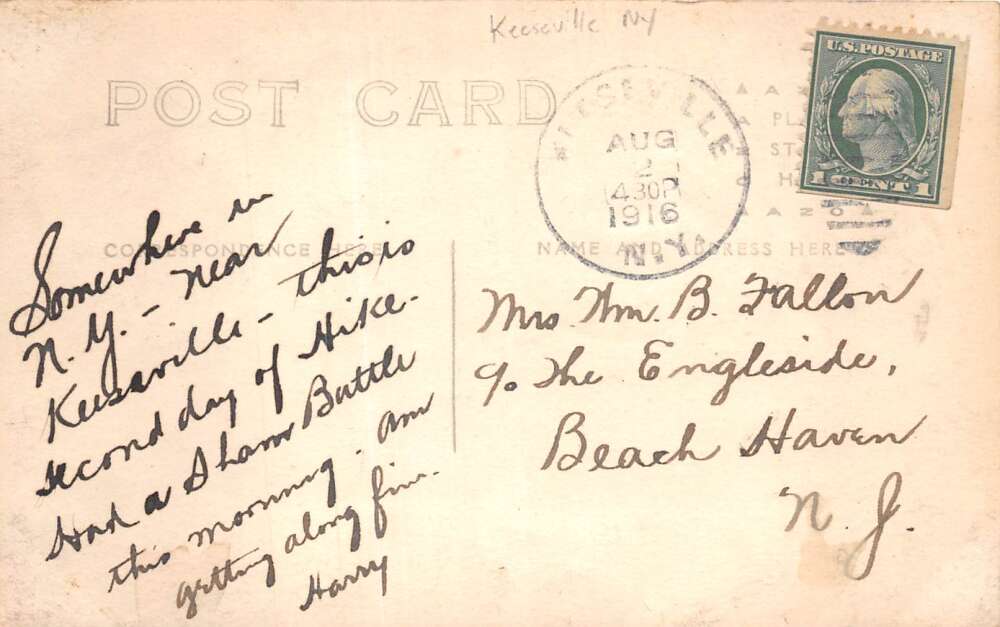 Keeseville NY
POST CARD
KEESEVILLE
AUG
2
430P
1916
N.Y.
U.S. POSTAGE
1 CENT 1
CORRESPONDENCE HERE
NAME AND ADDRESS HERE
Somewhere in
N. Y. - near
Keeseville - this is
second day of Hike.
Had a Sham Battle
this morning. Am
getting along fine.
Harry
Mrs Wm. B. Fallon
c/o The Engleside,
Beach Haven
N. J.